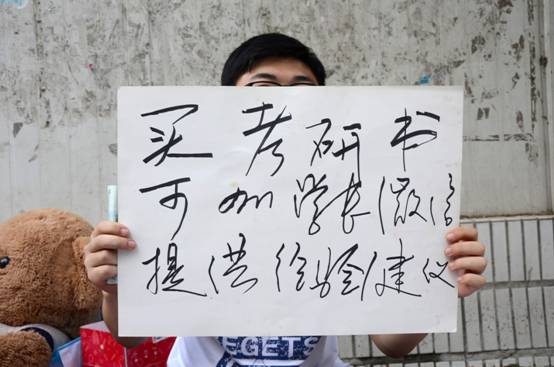 买考研书
可加学长微信
提供经验建议
EGETS